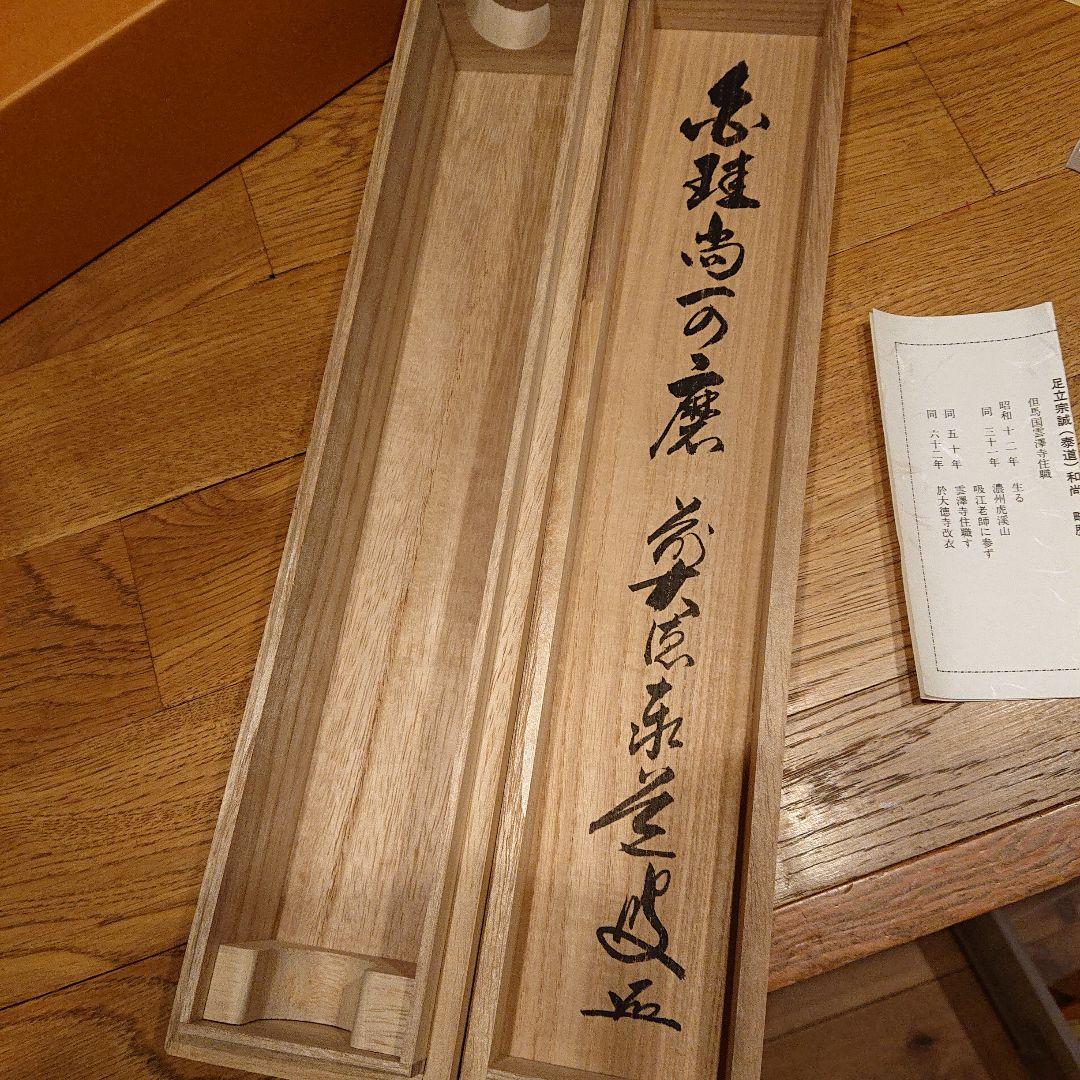 白珪尚可磨 前大徳泰道叟
足立宗誠(泰道)和尚 略歴
但馬国雲澤寺住職
昭和十二年 生る
同 三十一年 濃州虎溪山
吸江老師に参ず
同 五十年 雲澤寺住職す
同 六十二年 於大徳寺改衣